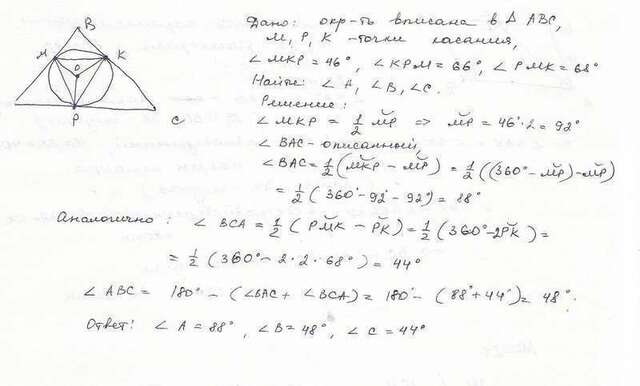 Дано: окр-ть вписана в Δ ABC,
M, P, K - точки касания,
∠MKP = 46°, ∠KPM = 66°, ∠PMK = 68°
Найти: ∠A, ∠B, ∠C.
Решение:
∠MKP = 1/2 M͝P => M͝P = 46°·2 = 92°
∠BAC - описанный,
∠BAC = 1/2 (M͝KP - M͝P) = 1/2 ((360° - M͝P) - M͝P)
= 1/2 (360° - 92° - 92°) = 88°
Аналогично: ∠BCA = 1/2 (P͝MK - P͝K) = 1/2 (360° - 2P͝K) =
= 1/2 (360° - 2·2·68°) = 44°
∠ABC = 180° - (∠BAC + ∠BCA) = 180° - (88° + 44°) = 48°.
Ответ: ∠A = 88°, ∠B = 48°, ∠C = 44°
B
M
K
O
P
C